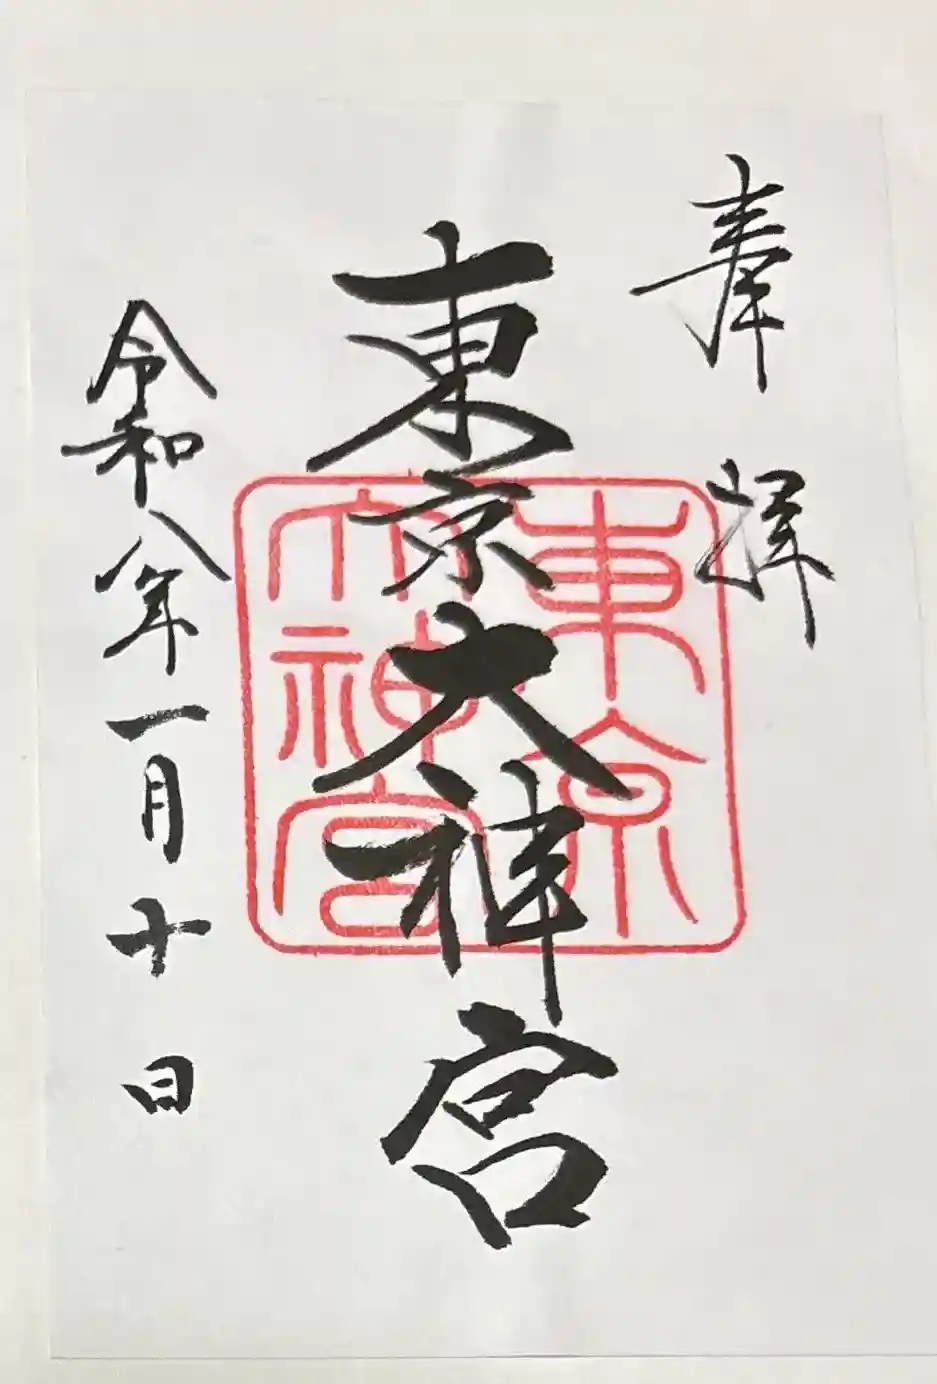 奉拝
東京大神宮
令和八年一月十日
東京
大神宮